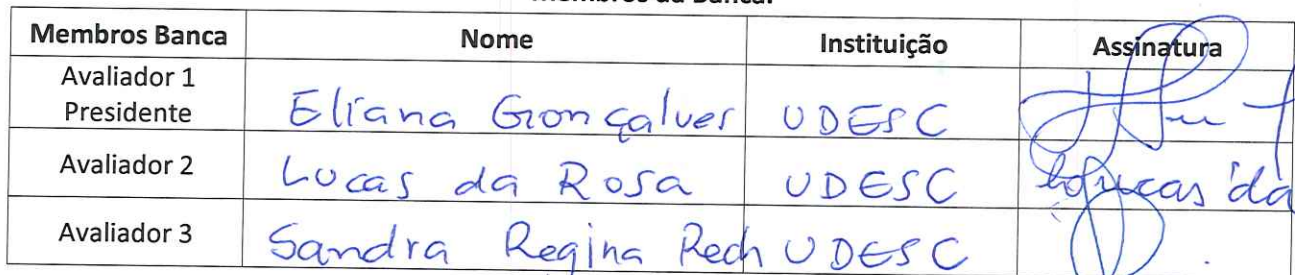 Membros da Banca:
Membros Banca Nome Instituição Assinatura
Avaliador 1
Presidente Eliana Gonçalves UDESC
Avaliador 2 Lucas da Rosa UDESC Lucas da
Avaliador 3 Sandra Regina Rech UDESC